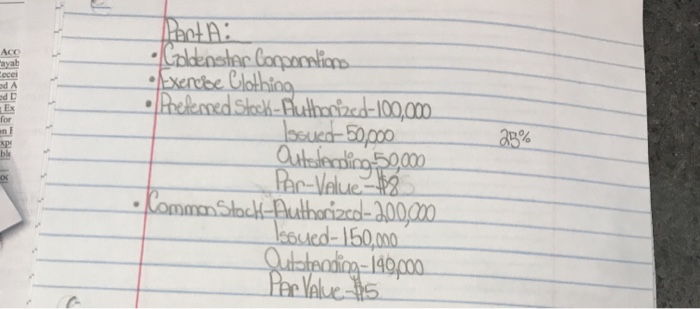 Part A:
• Goldenstar Corporations
• Exercise Clothing
• Preferred Stock-Authorized-100,000
Issued-50,000 25%
Outstanding-50,000
Par-Value-$8
• Common Stock-Authorized-200,000
Issued-150,000
Outstanding-149,000
Par Value-$5
ACC
ayab
ed A
ed D
Ex
for